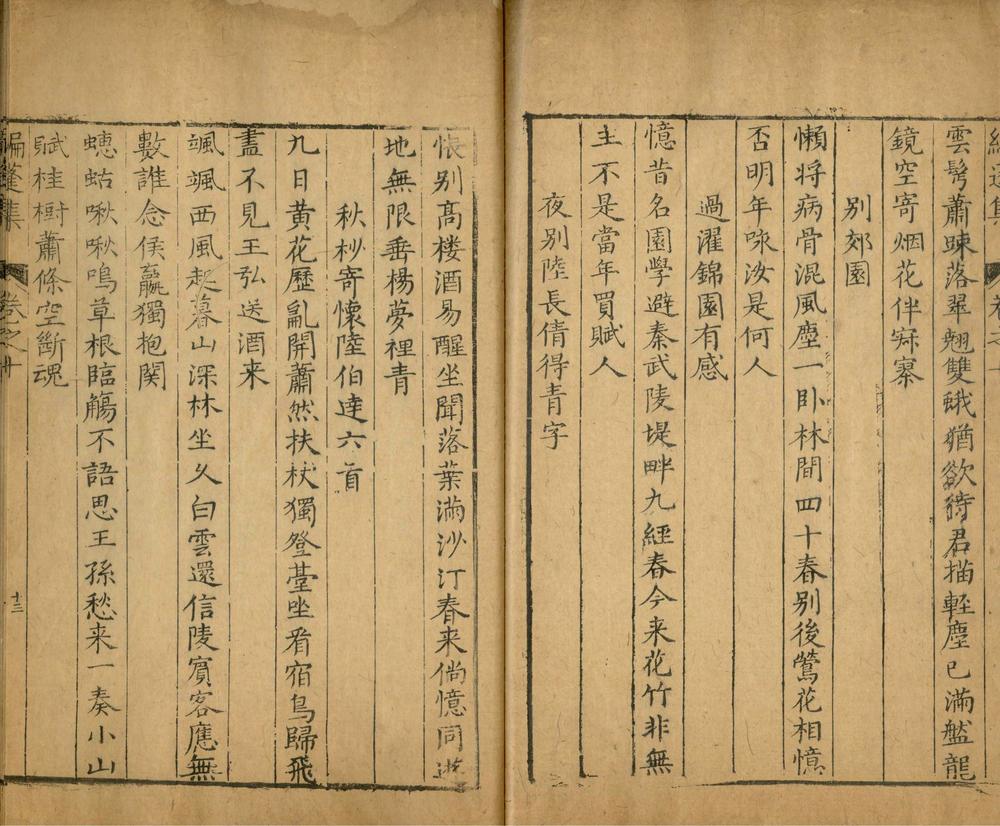 雲髩蕭踈落翠翹雙蛾猶欲待君描輊塵已滿盤龍
鏡空寄烟花伴寂寥
别郊園
懶将病骨混風塵一卧林間四十春别後鶯花相憶
否明年咏汝是何人
過濯錦園有感
憶昔名園學避秦武陵堤畔九經春今来花竹非無
主不是當年買賦人
夜别陸長倩得青字
悵别髙楼酒易醒坐聞落葉滿沙汀春来倘憶同遊
地無限垂楊夢裡青
秋杪寄懷陸伯達六首
九日黄花歷亂開蕭然扶杖獨登臺坐看宿鳥歸飛
盡不見王弘送酒来
颯颯西風起暮山深林坐久白雲還信陵賓客應無
數誰念侯嬴獨抱関
蟪蛄啾啾鳴草根臨觴不語思王孫愁来一奏小山
賦桂樹蕭條空斷魂
蓬集 卷之
十三